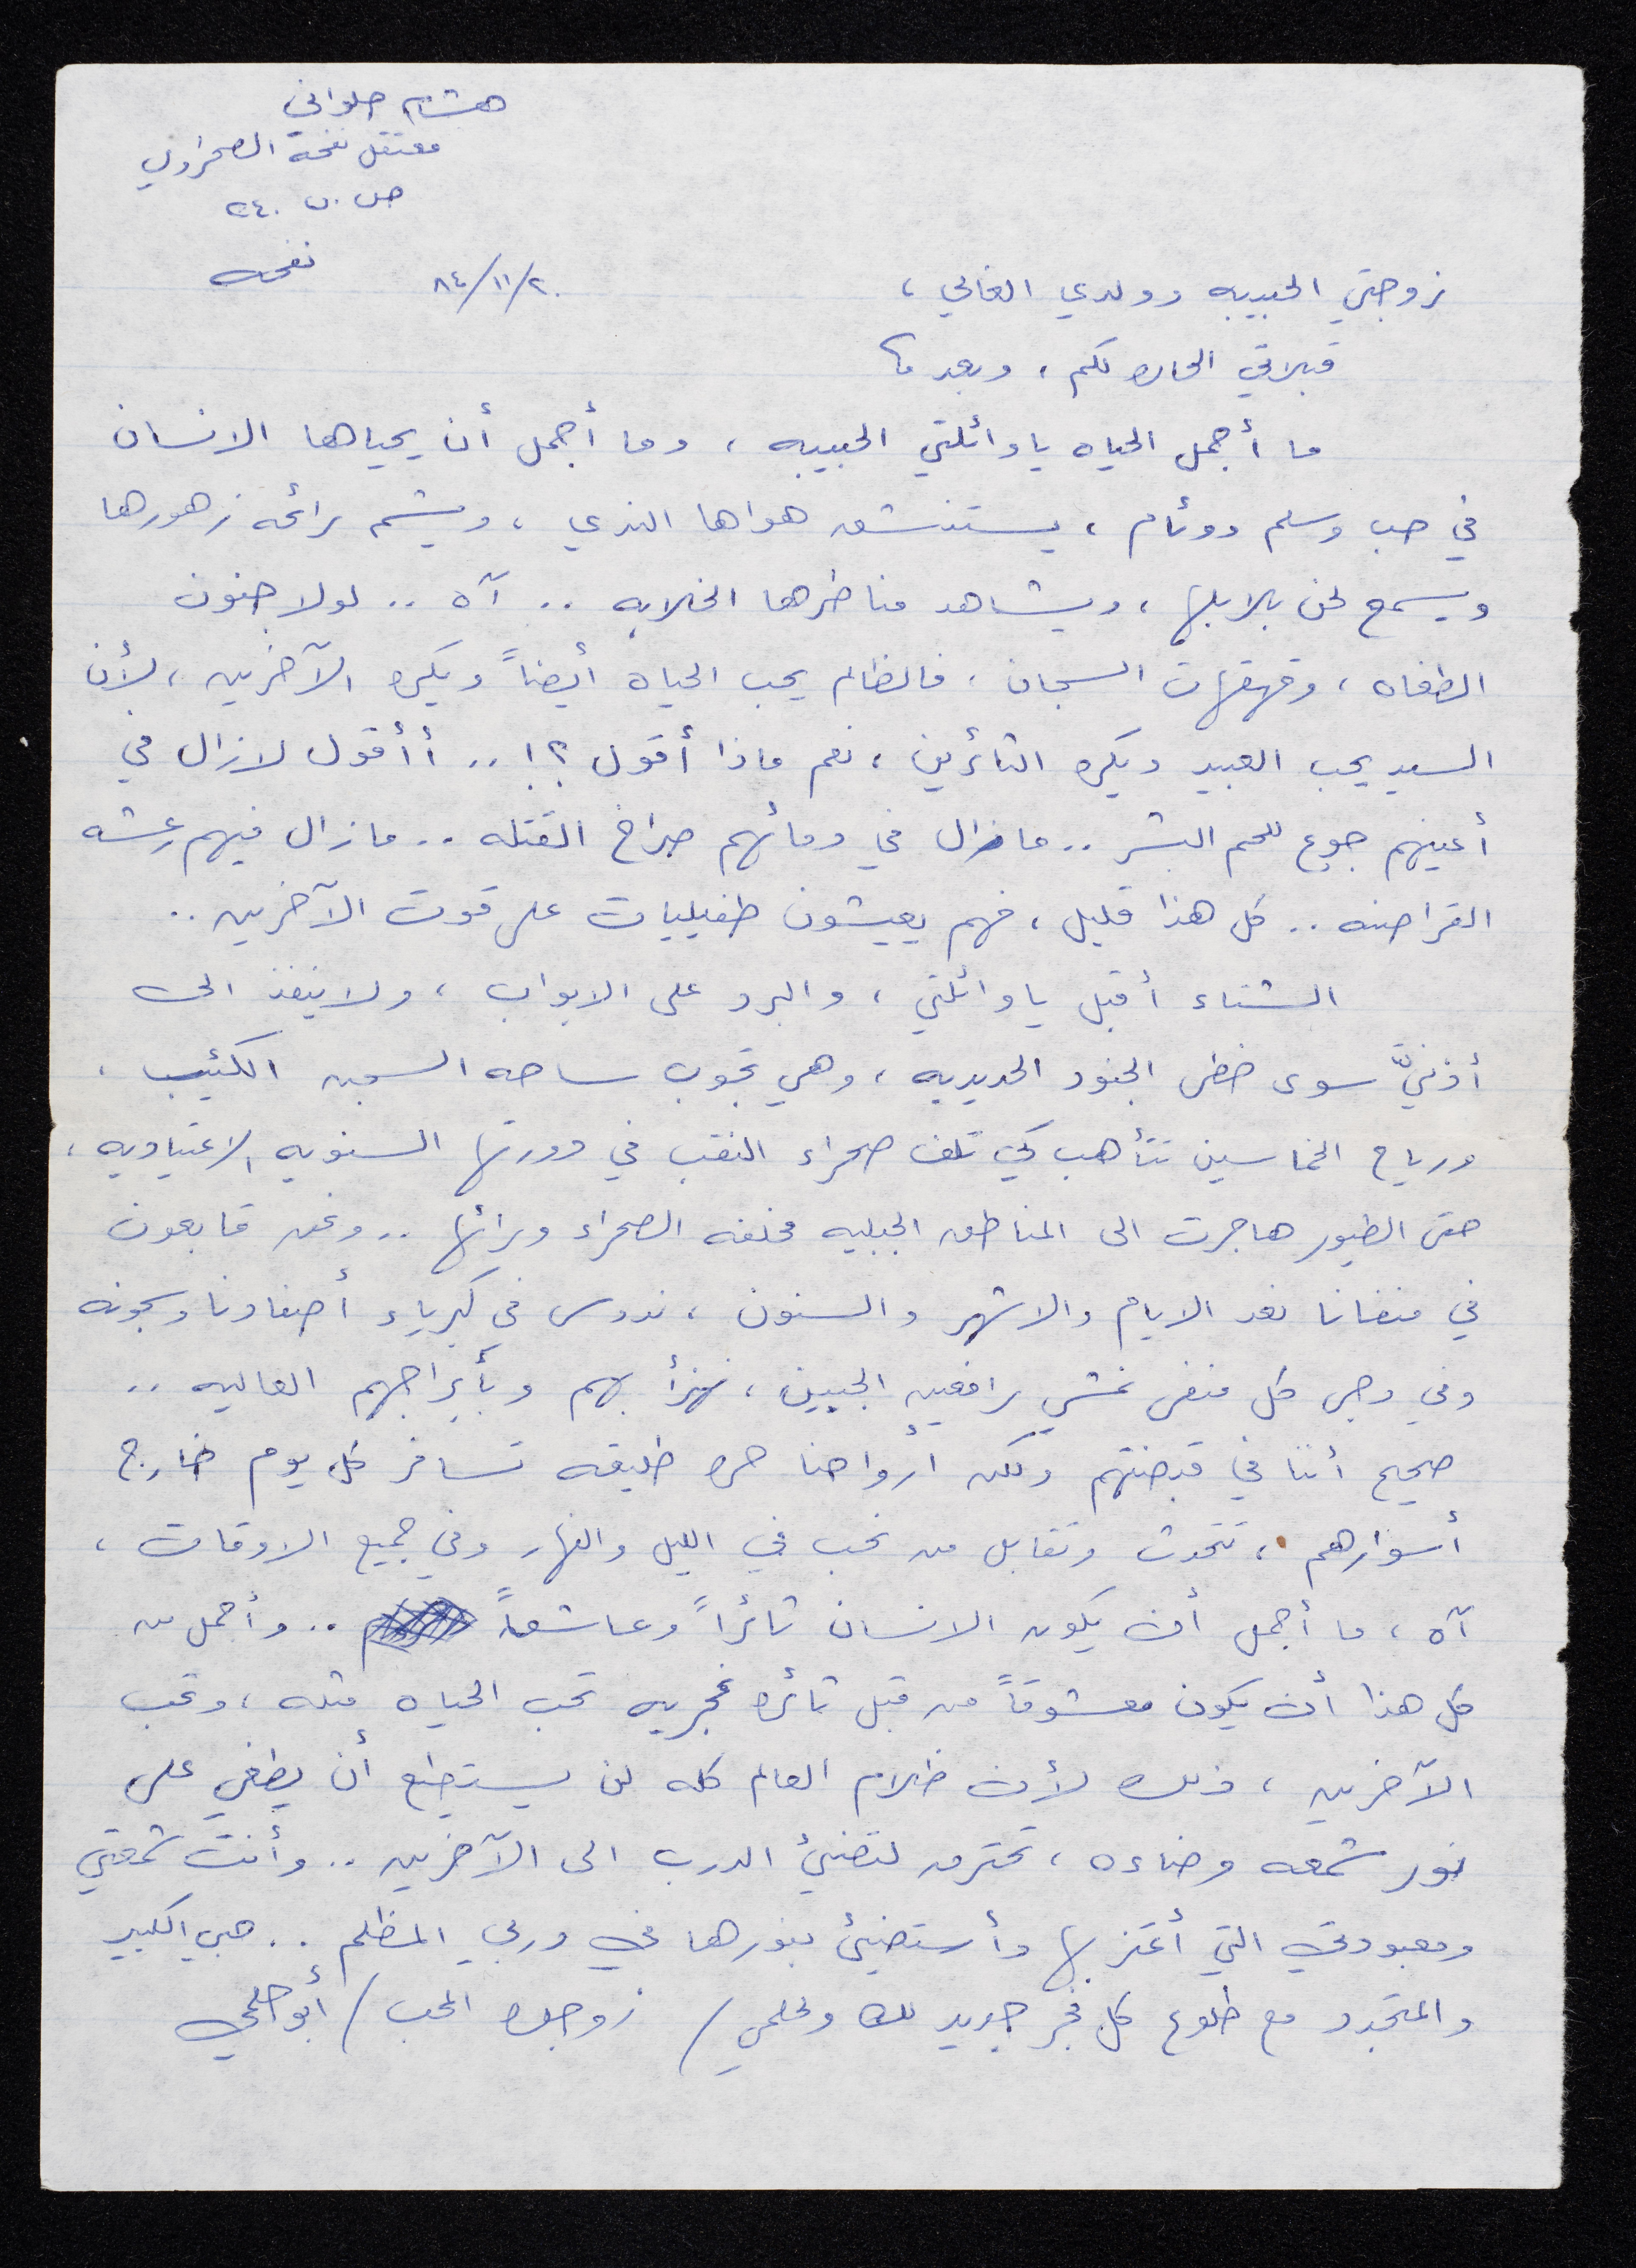 هشام حلواني
معتقل نفحة الصحراوي
ص. ب ٢٤٠
نفحه
٨٤/١١/٢٠
زوجتي الحبيبه وولدي الغالي ،
قبلاتي الحاره لكم ، وبعد ،،
ما أجمل الحياه يا وائلتي الحبيبه ، وما أجمل أن يحياها الانسان
في حب وسلم ووئام ، يستنشق هواها الندي ، ويشم رائحه زهورها
ويسمع لحن بلابلها ، ويشاهد مناظرها الخلابه .. آه .. لولا جنون
الطغاه ، وقهقهات السجان ، فالظالم يحب الحياه أيضاً ويكره الآخرين ، لأن
السيد يحب العبيد ويكره الثائرين ، نعم ماذا أقول ؟! .. أأقول لازال في
أعينهم جوع للحم البشر .. مازال في دمائهم صراخ القتله .. مازال فيهم رعشه
القراصنه .. كل هذا قليل ، فهم يعيشون طفيليات على قوت الآخرين ..
الشتاء أقبل يا وائلتي ، والبرد على الابواب ، ولا ينفذ الى
أذنيَّ سوى خطى الجنود الحديديه ، وهي تجوب ساحه السجن الكئيب ،
ورياح الخماسين تتأهب كي تلف صحراء النقب في دورتها السنويه الاعتياديه ،
حتى الطيور هاجرت الى المناطق الجبليه مخلفه الصحراء ورائها .. ونحن قابعون
في منفانا نعد الايام والاشهر والسنون ، ندوس في كبرياء أصفادنا وسجونه
وفي دجى كل منفى نمشي رافعين الجبين ، نهزأ بهم وبأبراجهم العاليه ..
صحيح أننا في قبضتهم ولكن أرواحنا حره طليقه تسافر كل يوم خارج
أسوارهم ، تتحدث وتقابل من نحب في الليل والنهار وفي جميع الاوقات ،
آه ، ما أجمل أن يكون الانسان ثائراً وعاشقاً .. وأجمل من
كل هذا أن يكون معشوقاً من قبل ثائره غجريه تحب الحياه مثله ، وتحب
الآخرين ، ذلك لأن ظلام العالم كله لن يستطيع أن يطغي على
نور شمعه وضاءه ، تحترق لتضيئ الدرب الى الآخرين .. وأنت شمعتي
ومعبودتي التي أعتز بها وأستضيئ بنورها في دربي المظلم .. حبي الكبير
والمتجدد مع طلوع كل فجر جديد لك ولحلمي / زوجك المحب / أبو حلمي